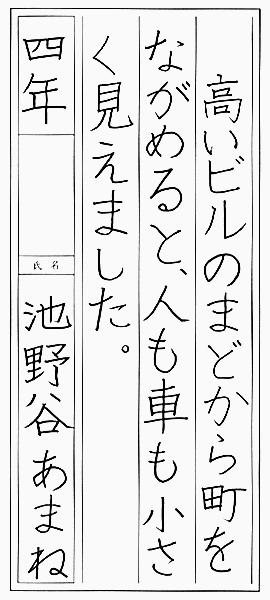 高いビルのまどから町を
ながめると、人も車も小さ
く見えました。
四年
氏名
池野谷あまね